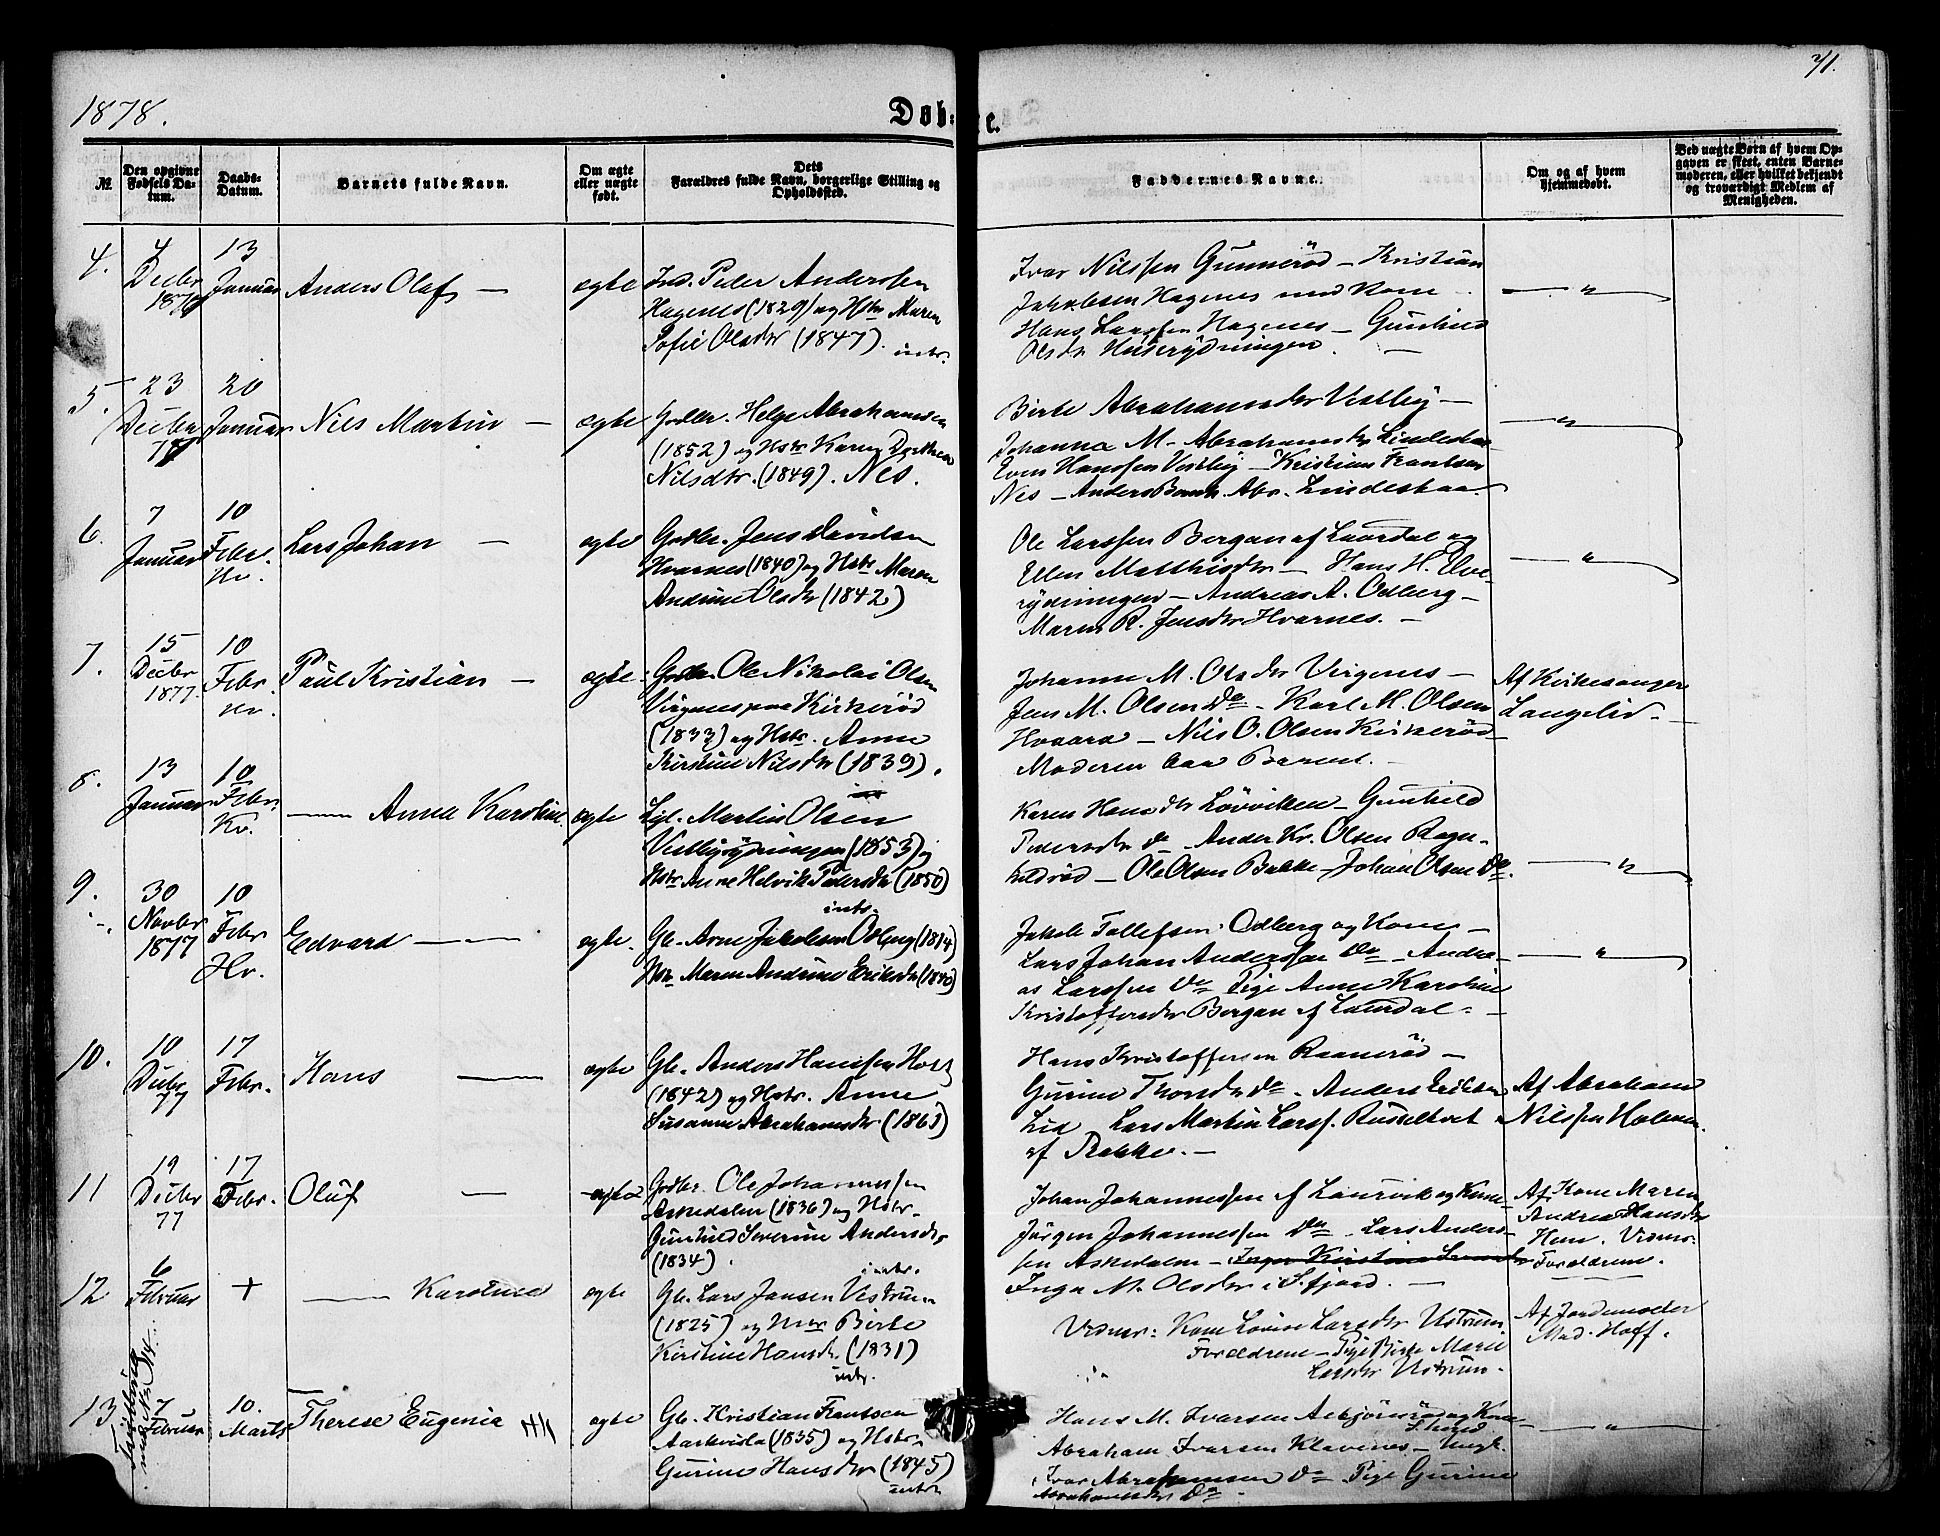 1878.
Døb-
te.
№.
Den opgivne Fødsels Da-
tum.
Daabs-
Datum.
Barnets fulde Navn.
Om ægte
eller uægte
født.
Dets
Forældres fulde Navn, borgerlige Stilling og
Opholdssted.
Faddernes Navne.
Om og af hvem
hjemmedøbt.
Ved uægte Børn af hvem Op-
gaven er skeet, enten Barne-
moderen, eller hvilket bekjendt
og troværdigt Medlem af
Menigheden.
4.
4
Decbr
13
Januar
Anders Olaf —
ægte
Ind. Peder Anderssen
Hagenes (1829) og Hstr Maren
Sofie Olsdtr (1847).
intr.
Ivar Nilssen Gunnerød — Kristian
Jakobsen Hagenes med Kone —
Hans Larssen Hagenes — Gunhild
Olsdtr Huserydningen. —
— " —
5.
23
Decbr
77
20
Januar
Nils Martin —
ægte
Godbr. Helge Abrahamsen
(1852) og Hstr Karen Dorthea
Nilsdtr. (1849). Nes.
Birte Abrahamsdtr Vestby —
Johanna M. Abrahamsdtr Lindeskaa
Even Hanssen Vestby — Kristian Frantsen
Nes — Anders Abr. Lindeskaa.
— " —
6.
7
Januar
10
Febr.
Hv.
Lars Johan —
ægte
Godbr. Jens Davidsen
Hvarnes (1840) og Hstr Maren
Andrine Olsdtr (1842)
Ole Larssen Bergan af Laurdal og
Ellen Matthisdtr — Hans H. Elve-
rydningen — Andreas A. Odberg —
Maren R. Jensdtr Hvarnes. —
— " —
7.
15
Decbr
1877.
10
Febr.
Hv.
Paul Kristian —
ægte
Godbr. Ole Nikolai Olsen
Virgenes paa Kirkerød
(1833) og Hstr. Anne
Kirstine Nilsdtr (1839).
Johanne M. Olsdtr Virgenes —
Jens M. Olsen do — Karl M. Olsen
Hvaara — Nils O. Olsen Kirkerød
Moderen bar Barnet. —
Af Kirkesanger
Langelid —
8.
13
Januar
10
Febr.
Kv.
— Anna Karoline
ægte
Lgl. Martin Olsen
Vestbyrydningen (1853) og
Hstr Anne Helvik Pedersdtr (1850)
intr.
Karen Hansdtr Løvvikken — Gunhild
Pedersdtr do — Anders Kr. Olsen Ragn-
hildrød — Ole Olsen Bakke — Johan Olsen do.
— " —
9.
30
Novbr
1877
10
Febr
Hv.
Edvard —
ægte.
Gb. Arne Jakobsen Odberg (1814)
Hstr Maren Andrine Eriksdtr (1840)
Jakob Tollefsen Odberg og Kone —
Lars Johan Anderssen do — Andre-
as Larssen do Pige Anne Karoline
Kristoffersdtr Bergan af Laurdal —
— " —
10.
10
Decbr
77
17
Febr.
Hans —
ægte
Gb. Anders Hanssen Holt
(1842) og Hstr. Anne
Susanne Abrahamsdtr (1863)
Hans Kristoffersen Raanerød —
Gurine Thorsdtr do — Anders Eriksen
Lid — Lars Martin Larss. Russeltvet
af Bakke. —
Af Abraham
Nilssen Holmen.
11
19
Decbr
77
17
Febr.
Oluf —
ægte
Godbr. Ole Johannessen
Askedalen (1836) og Hstr.
Gunhild Severine Andersdtr
(1834).
intr.
Johan Johannessen af Laurvik og Kone
Jørgen Johannessen do — Lars Anders-
sen Askedalen —
Inga M. Olsdtr i S.fjord. —
Af Kone Maren
Andrea Hansdtr
Hem. Vidner:
Forældrene.
12
6
Februar
+
— Karoline
ægte
Gb. Lars Jansen Vestrum
(1825) og Hstr Birte
Kirstine Hansdtr (1831)
intr.
Vidner: Kone Lovise Larsdtr Ustrum
Forældrene — Pige Birte Marie
Larsdtr Ustrum.
Af Jordemoder
Mad. Hoff.
13
7
Februar
10.
Marts
Therese Eugenia
ægte
Gb. Kristian Frantsen
Aarhusla (1835) og Hstr.
Gurine Hansdtr (1845)
intr.
Hans M. Ivarsen Asbjørnrød og Kone
Abraham Ivarsen Klavenes — Ungk.
Ivar Abrahamsen do Pige Gurine
Abrahamsdtr do.
— " —